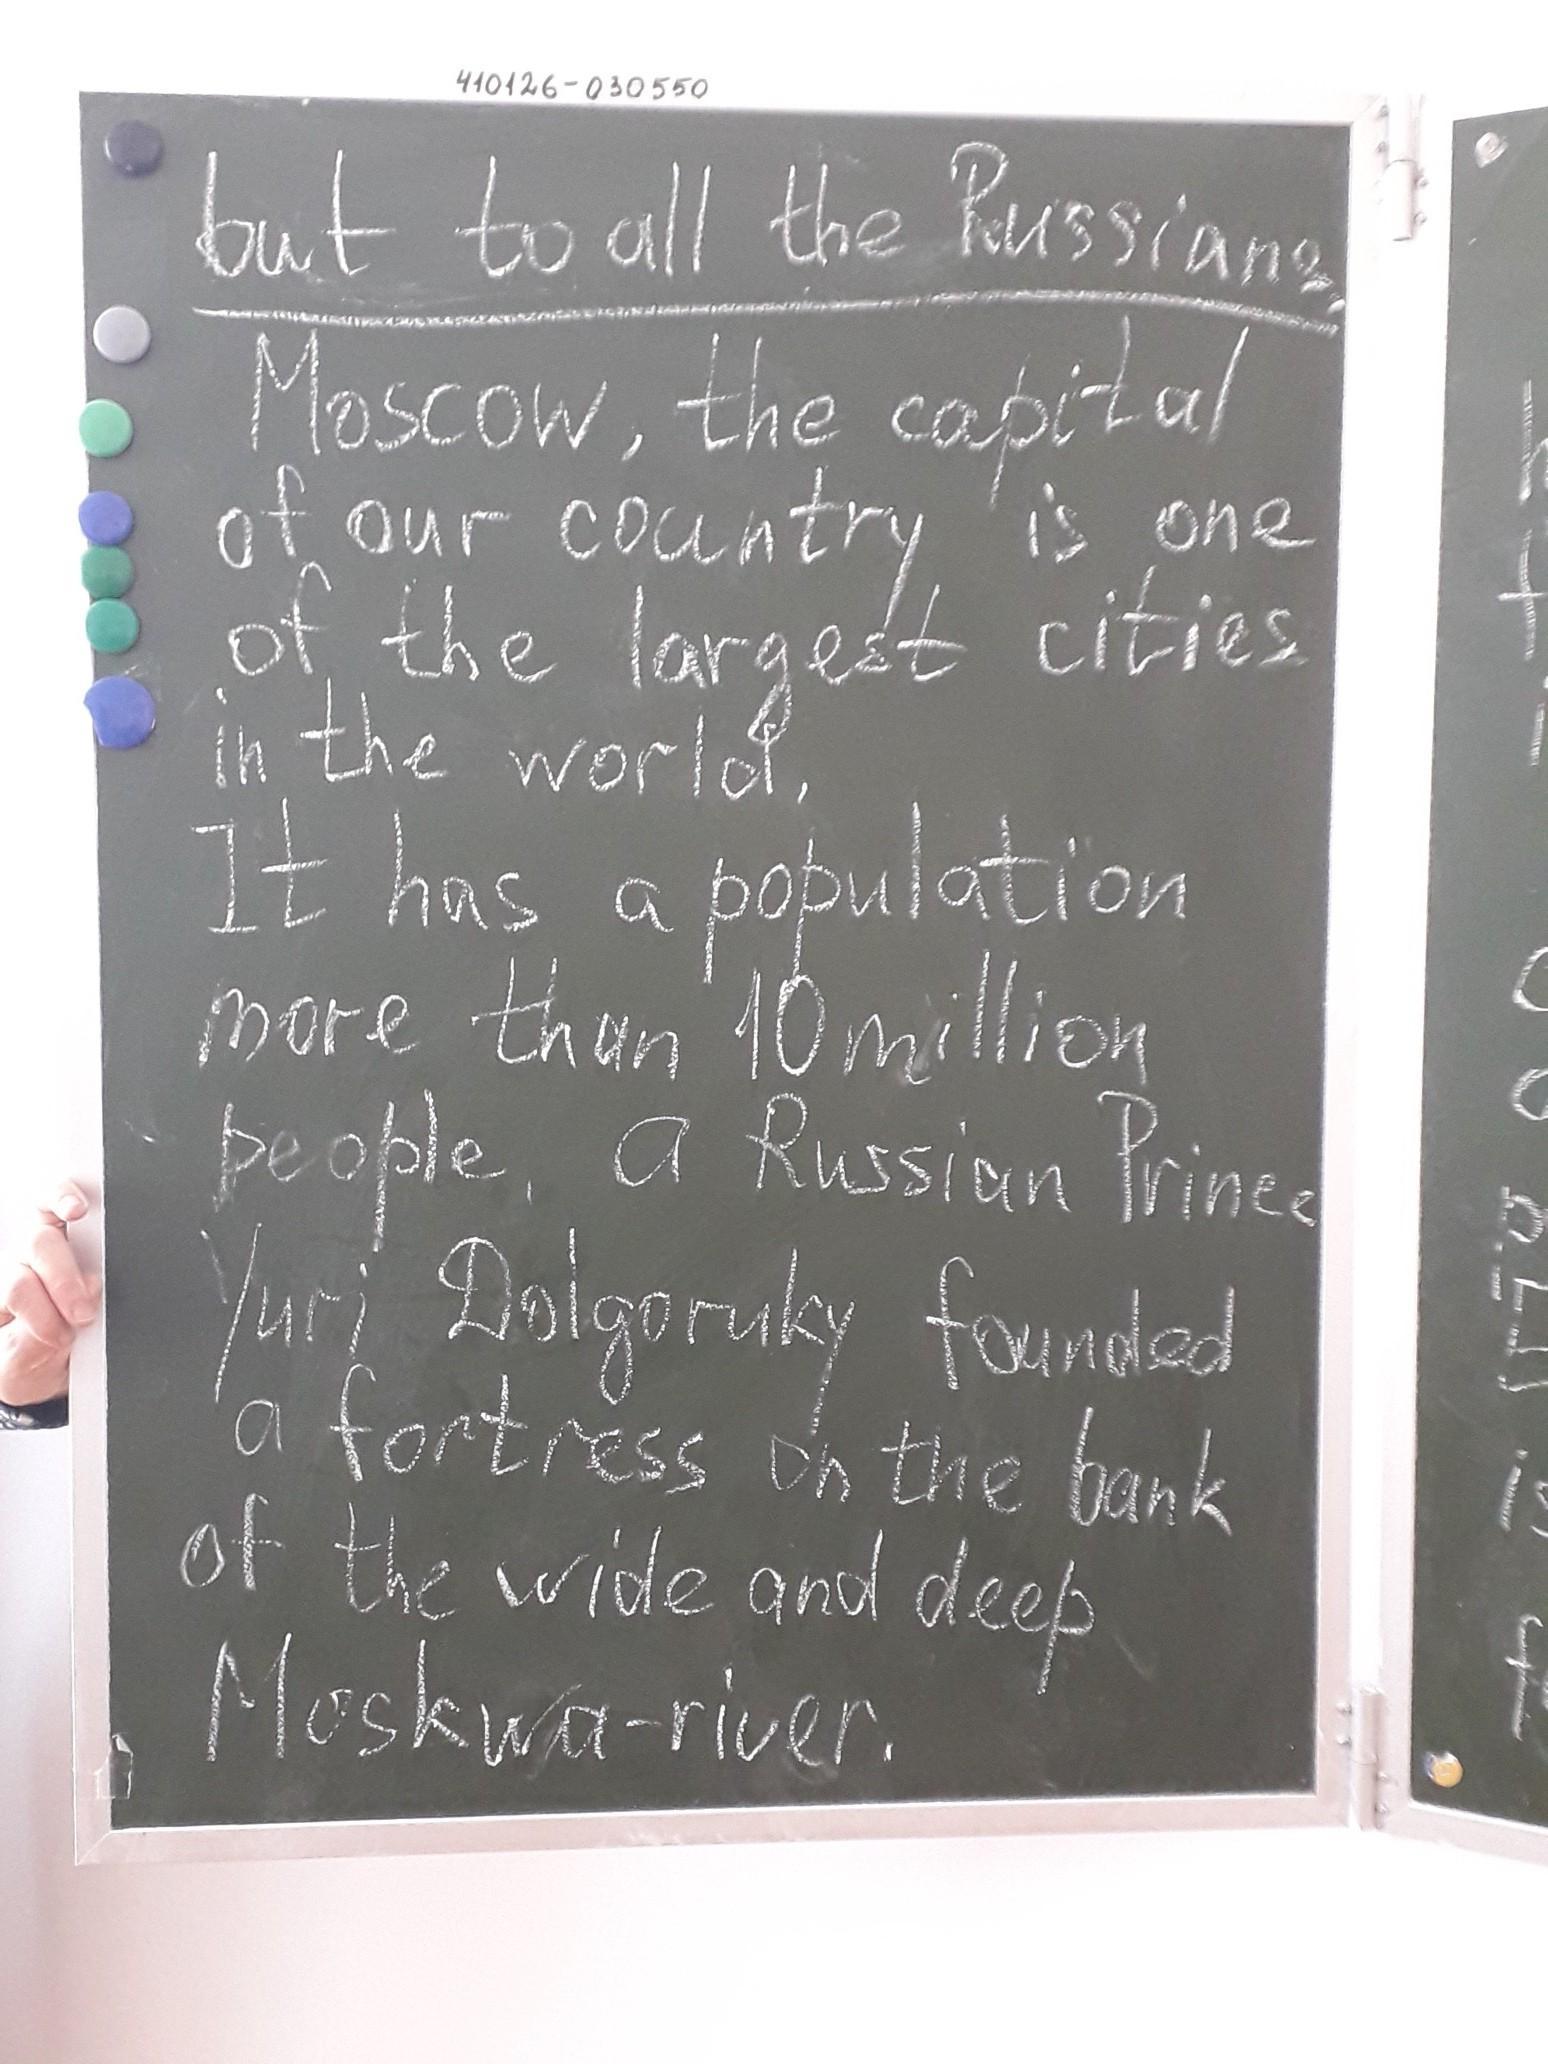 410126-030550
but to all the Russians.
Moscow, the capital
of our country is one
of the largest cities
in the world.
It has a population
more than 10 million
people, a Russian Prince
Yuri Dolgoruky founded
a fortress on the bank
of the wide and deep
Moskwa-river.